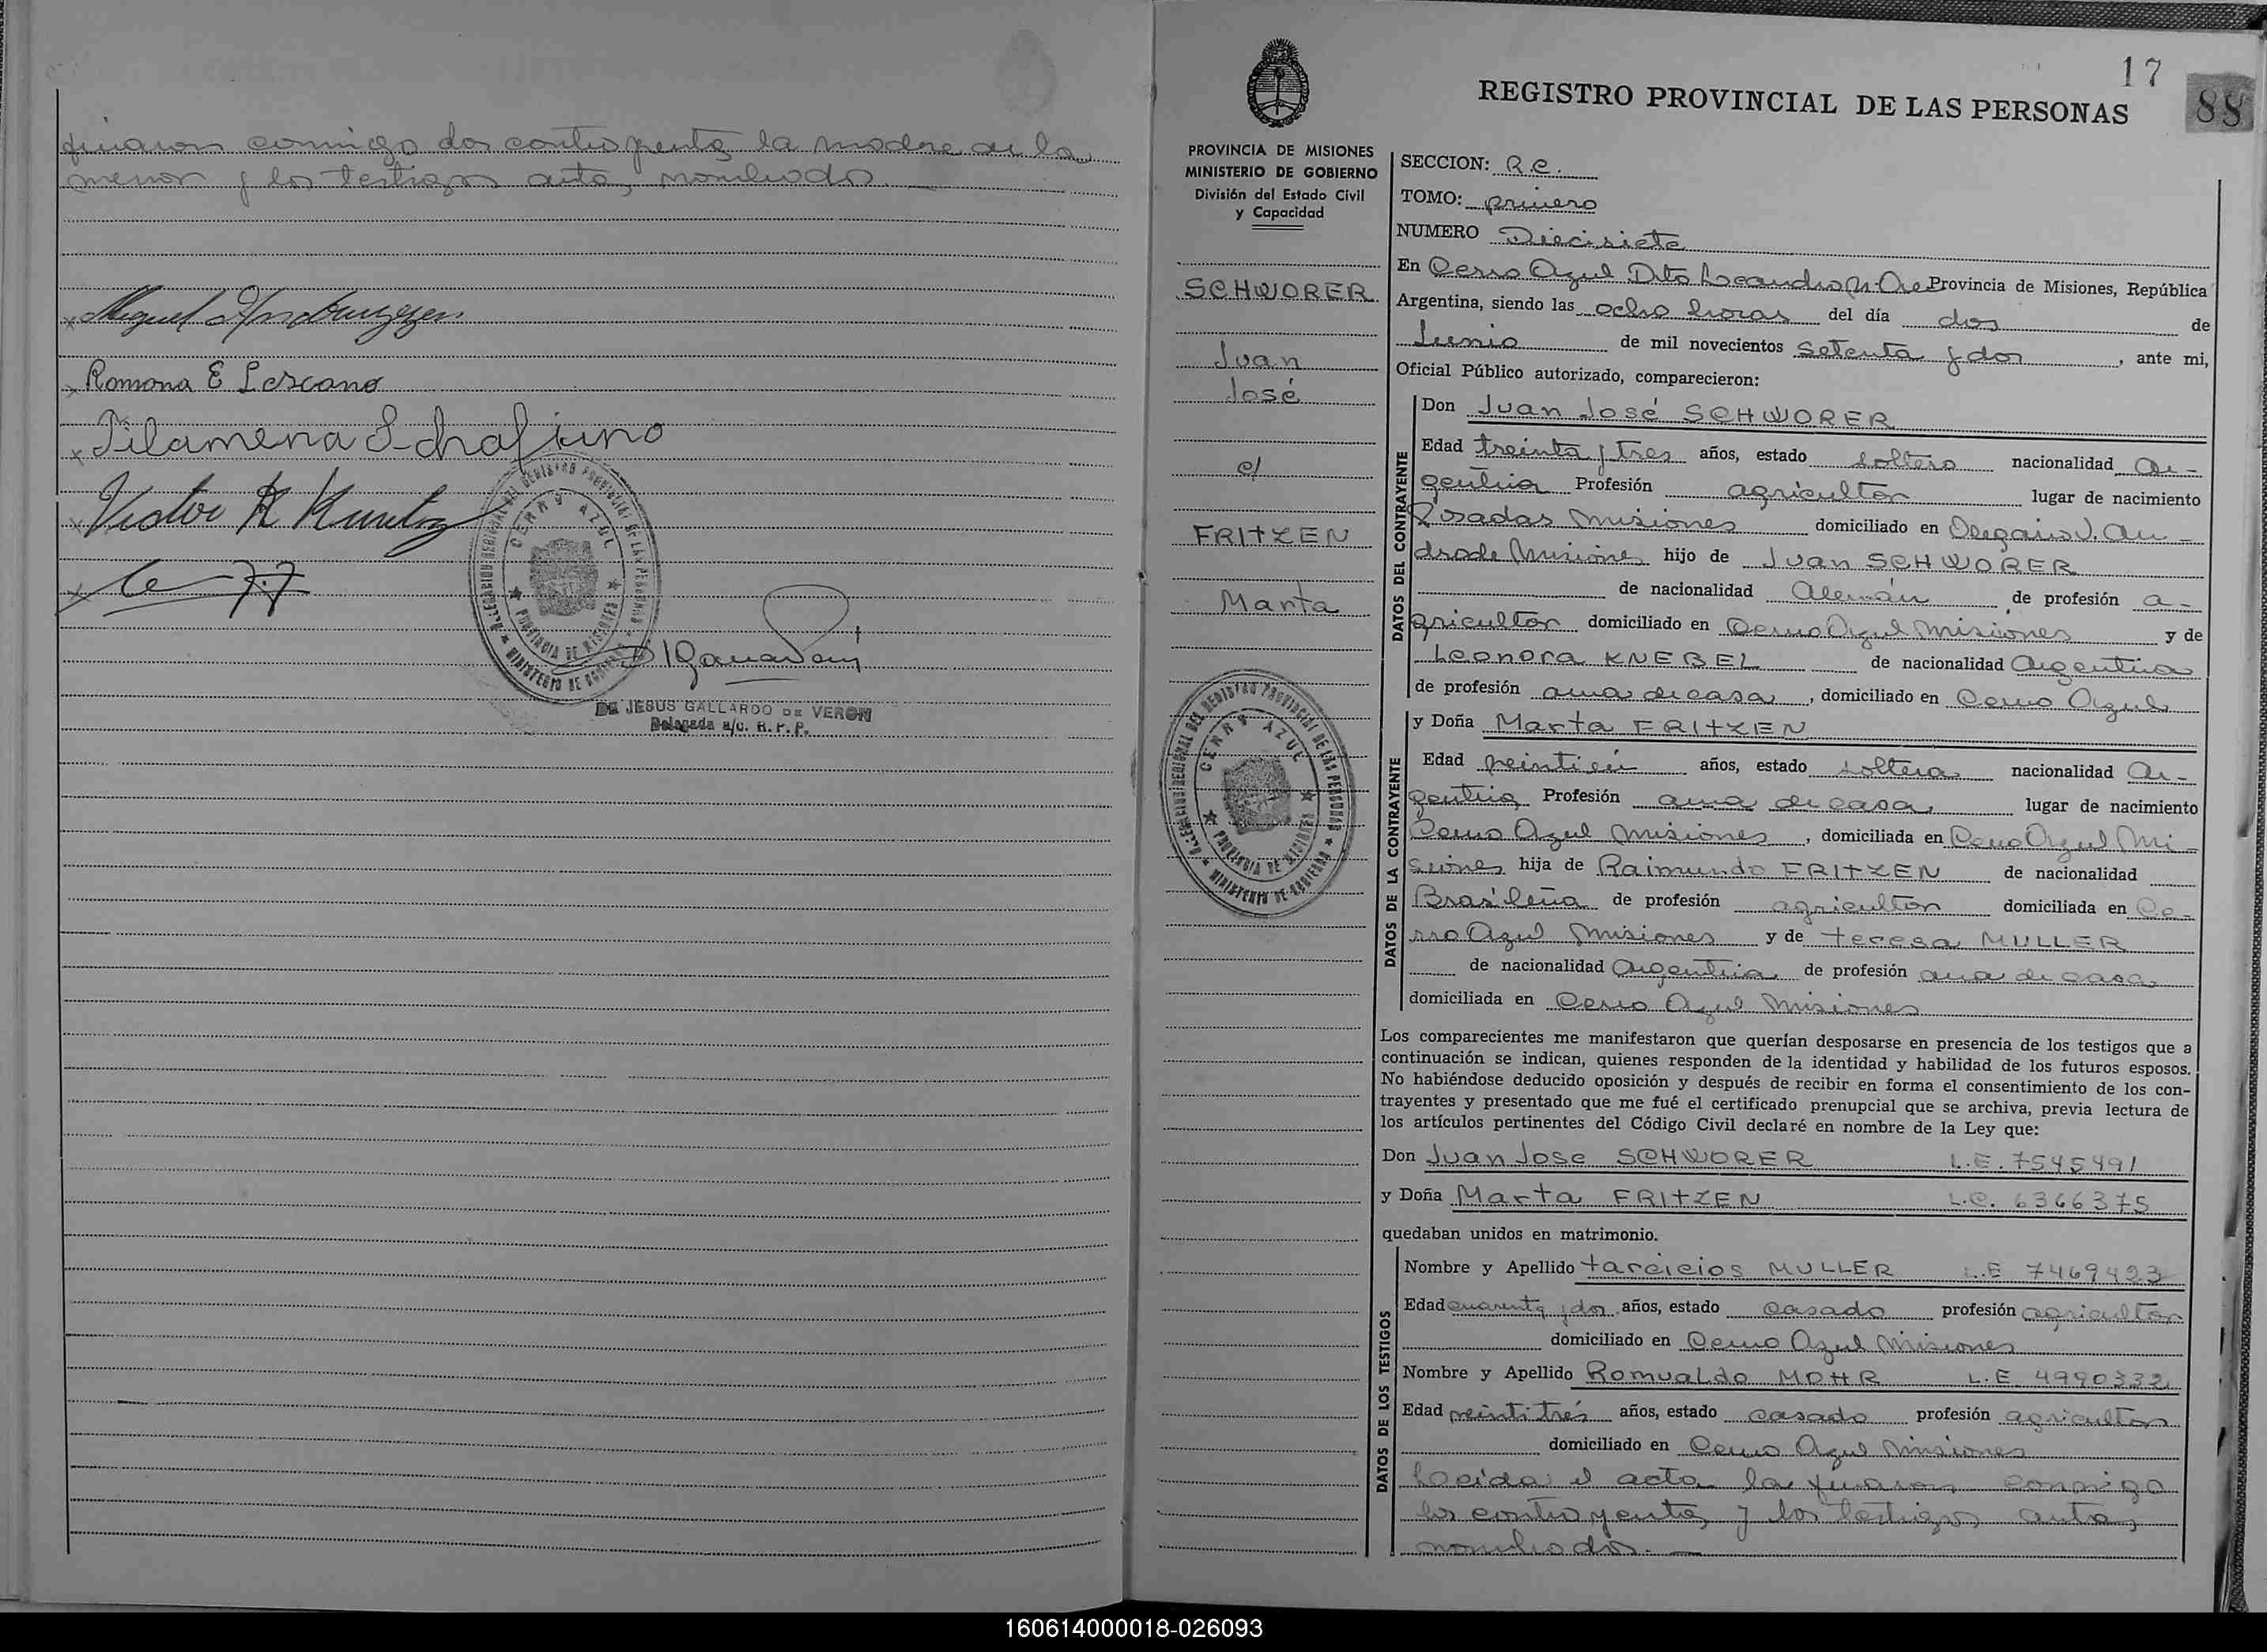 firmaron conmigo los contrayentes la madre de la
menor y los testigos antes nombrados.
Miguel
Ramona E Lescano
Victor R Kuntz
DELEGACION REGIONAL DEL REGISTRO PROVINCIAL DE LAS PERSONAS
CERRO AZUL
PROVINCIA DE MISIONES
MINISTERIO DE GOBIERNO
DE JESUS GALLARDO DE VERON
Delegada a/c. R. P. P.
17
88
REGISTRO PROVINCIAL DE LAS PERSONAS
PROVINCIA DE MISIONES
MINISTERIO DE GOBIERNO
División del Estado Civil
y Capacidad
SCHWORER
Juan
José
c/
FRITZEN
Marta
DELEGACION REGIONAL DEL REGISTRO PROVINCIAL DE LAS PERSONAS
CERRO AZUL
PROVINCIA DE MISIONES
MINISTERIO DE GOBIERNO
SECCION: R.C.
TOMO: primero
NUMERO Diecisiete
En Cerro Azul Dto Leandro N. Ale Provincia de Misiones, República
Argentina, siendo las ocho horas del día dos de
Junio de mil novecientos setenta y dos, ante mi,
Oficial Público autorizado, comparecieron:
DATOS DEL CONTRAYENTE
Don Juan José SCHWORER
Edad treinta y tres años, estado soltero nacionalidad Ar-
gentina Profesión agricultor lugar de nacimiento
Posadas Misiones domiciliado en Olegario V. An-
drade Misiones hijo de Juan SCHWORER
de nacionalidad Alemán de profesión a-
gricultor domiciliado en Cerro Azul Misiones y de
Leonora KNEBEL de nacionalidad Argentina
de profesión ama de casa, domiciliado en Cerro Azul
DATOS DE LA CONTRAYENTE
y Doña Marta FRITZEN
Edad años, estado soltera nacionalidad Ar-
gentina Profesión ama de casa lugar de nacimiento
Cerro Azul Misiones, domiciliada en Cerro Azul Mi-
siones hija de Raimundo FRITZEN de nacionalidad
Brasileña de profesión agricultor domiciliada en Ce-
rro Azul Misiones y de Teresa MULLER
de nacionalidad Argentina de profesión ama de casa
domiciliada en Cerro Azul Misiones
Los comparecientes me manifestaron que querían desposarse en presencia de los testigos que a
continuación se indican, quienes responden de la identidad y habilidad de los futuros esposos.
No habiéndose deducido oposición y después de recibir en forma el consentimiento de los con-
trayentes y presentado que me fué el certificado prenupcial que se archiva, previa lectura de
los artículos pertinentes del Código Civil declaré en nombre de la Ley que:
Don Juan Jose SCHWORER L.E. 7545491
y Doña Marta FRITZEN L.C. 6366375
quedaban unidos en matrimonio.
DATOS DE LOS TESTIGOS
Nombre y Apellido Tarcicios MULLER L.E 7469423
Edad cuarenta y dos años, estado casado profesión agricultor
domiciliado en Cerro Azul Misiones
Nombre y Apellido Romualdo MOHR L.E. 4990332
Edad veintitrés años, estado casado profesión agricultor
domiciliado en Cerro Azul Misiones
Leida el acta la firmaron conmigo
los contrayentes y los testigos antes
nombrados.
160614000018-026093